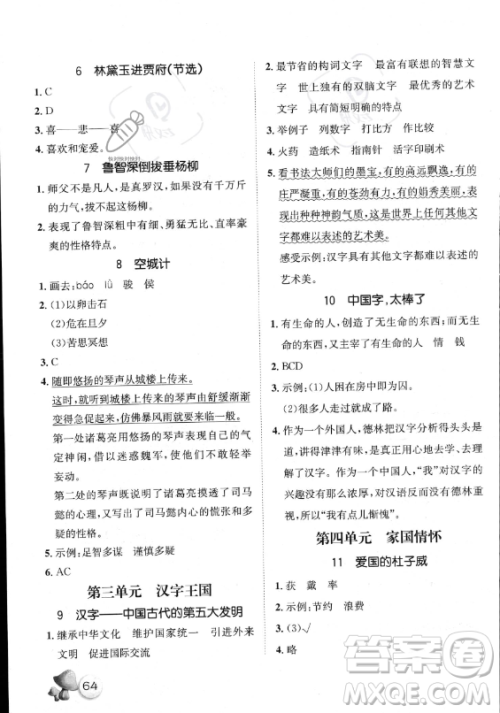 6 林黛玉进贾府(节选)
1. C
2. D
3. 喜－悲－喜
4. 喜欢和宠爱。
7 鲁智深倒拔垂杨柳
1. 师父不是凡人,是真罗汉,如果没有千万斤
的力气,拔不起这杨柳。
2. 表现了鲁智深粗中有细、勇猛无比、直率豪
爽的性格特点。
8 空城计
1. 画去:báo lǜ 骏 侯
2. (1)以卵击石
(2)危在旦夕
(3)苦思冥想
3. C
4. 随即悠扬的琴声从城楼上传来。
这时,就听到城楼上传来的琴声由舒缓渐渐
变得急促起来,仿佛暴风雨就要来临一般。
第一处诸葛亮用悠扬的琴声表现自己的气
定神闲。借以迷惑魏军,使其不敢轻举
妄动。
第二处的琴声表现了诸葛亮吃透了司马
懿的心理,进而突出司马懿内心的慌张和多
疑的性格。
5. 示例:足智多谋 谨慎多疑
6. AC
第三单元 汉字王国
9 汉字——中国古代的第五大发明
1. 继承中华文化 维护国家统一 引进外来
文明 促进国际交流
64
2. 最节省的构词文字 最有联想的智慧文
字 世上独一的双脑文字 最优秀的艺术
文字 具有简短明了的特点
3. 举例子 列数字 打比方 作比较
4. 火药 造纸术 指南针 活字印刷术
5. 看书法大师们的墨宝,有的高远飘逸,有的
庄严凝重,有的苍劲有力,有的娟秀美丽。
种种神态,种种神韵气质,这是世上任何
文字都难以表述的艺术美。
感受示例:汉字具有其他文字难以表述的
艺术美。
10 中国字,太棒了
1. 有生命的人,创造了有生命的东西;而无生
命的东西,又主宰了有生命的人 情 钱
2. BCD
3. 示例:(1)人困在房中即为囚。
(2)人走多了,就成了路。
4. 作为一个外国人,德林把汉字分析得头头
是道,讲得津津有味,真是用心地去学、去了
解中国文化。相反,作为中国人,“我”对汉字的
兴趣并没有那么浓厚,对汉语反而没有德林重
视,所以“我有点儿惭愧”。
第四单元 家国情怀
11 爱国的杜子威
1. 获 戴 率
2. 示例:节约 浪费
3. (3)√
4. 略
答案圈
MXQE.COM